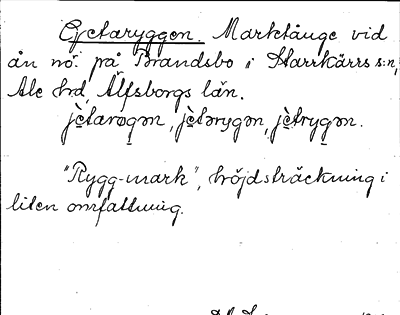 Gjetaryggen. Marktånge vid
ån nö. på Brandsbo i Starrkärrs s:n,
Ale hrd, Älfsborgs län.
jètarøgən, jètərygən, jètrygən.
"Rygg-mark", höjdsträckning i
liten omfattning.